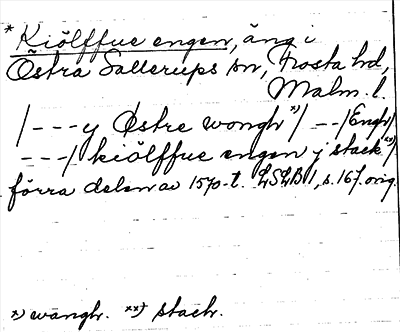 * Kiölffue engen, äng i
Östra Sallerups sn, Frosta hd,
Malm. l
/---y Østre wongh *)/ --/Engh/
---/ kiölffue engen j stack **)/
förra delen av 1570-t. LSLB 1, s. 167. orig.
*) wångh. **) stach.